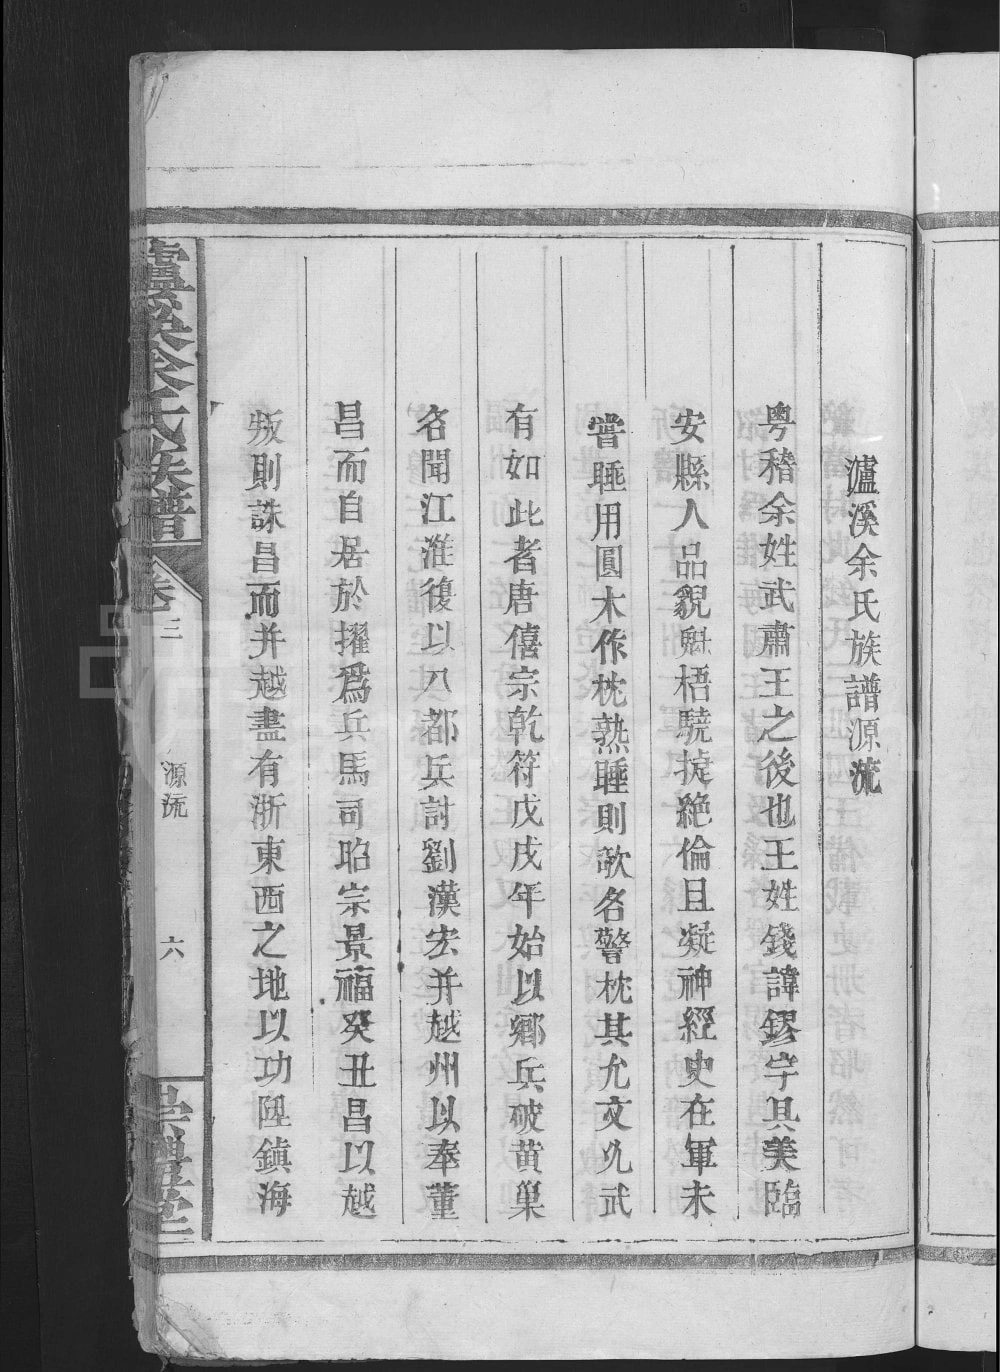 瀘溪余氏族譜源流
粵稽余姓武肅王之後也王姓錢諱鏐字具美臨
安縣人品貌魁梧驍㨗絶倫且凝神經史在軍未
嘗睡用圓木作枕熟睡則欹名警枕其允文允武
有如此者唐僖宗乾符戊戌年始以鄉兵破黄巢
名聞江淮復以八都兵討劉漢宏并越州以奉董
昌而自居於擢爲兵馬司昭宗景福癸丑昌以越
叛則誅昌而并越盡有浙東西之地以功陞鎮海
瀘溪余氏族譜
卷三
源流
六